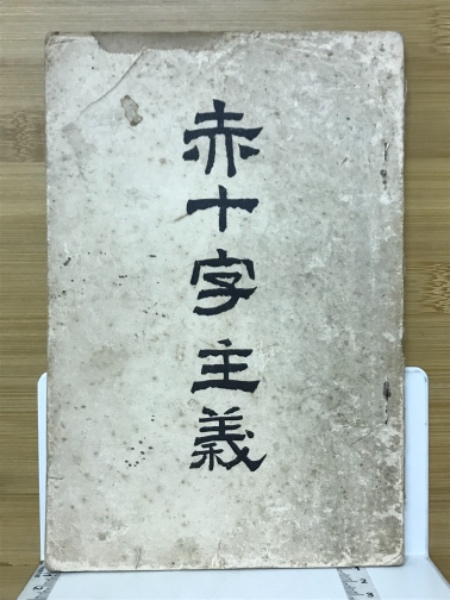 赤十字主義